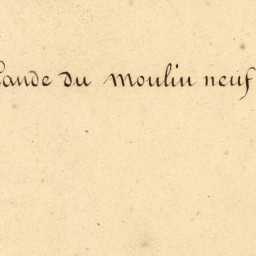 Lande du Moulin neuf